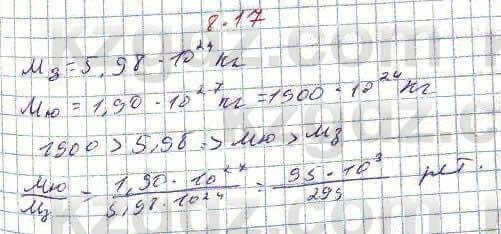 8.17
Mз = 5,98 · 10²⁴ кг
Mю = 1,90 · 10²⁷ кг = 1900 · 10²⁴ кг
1900 > 5,98 => Mю > Mз
Mю/Mз = 1,90 · 10²⁷ / 5,98 · 10²⁴ = 95 · 10³ / 299